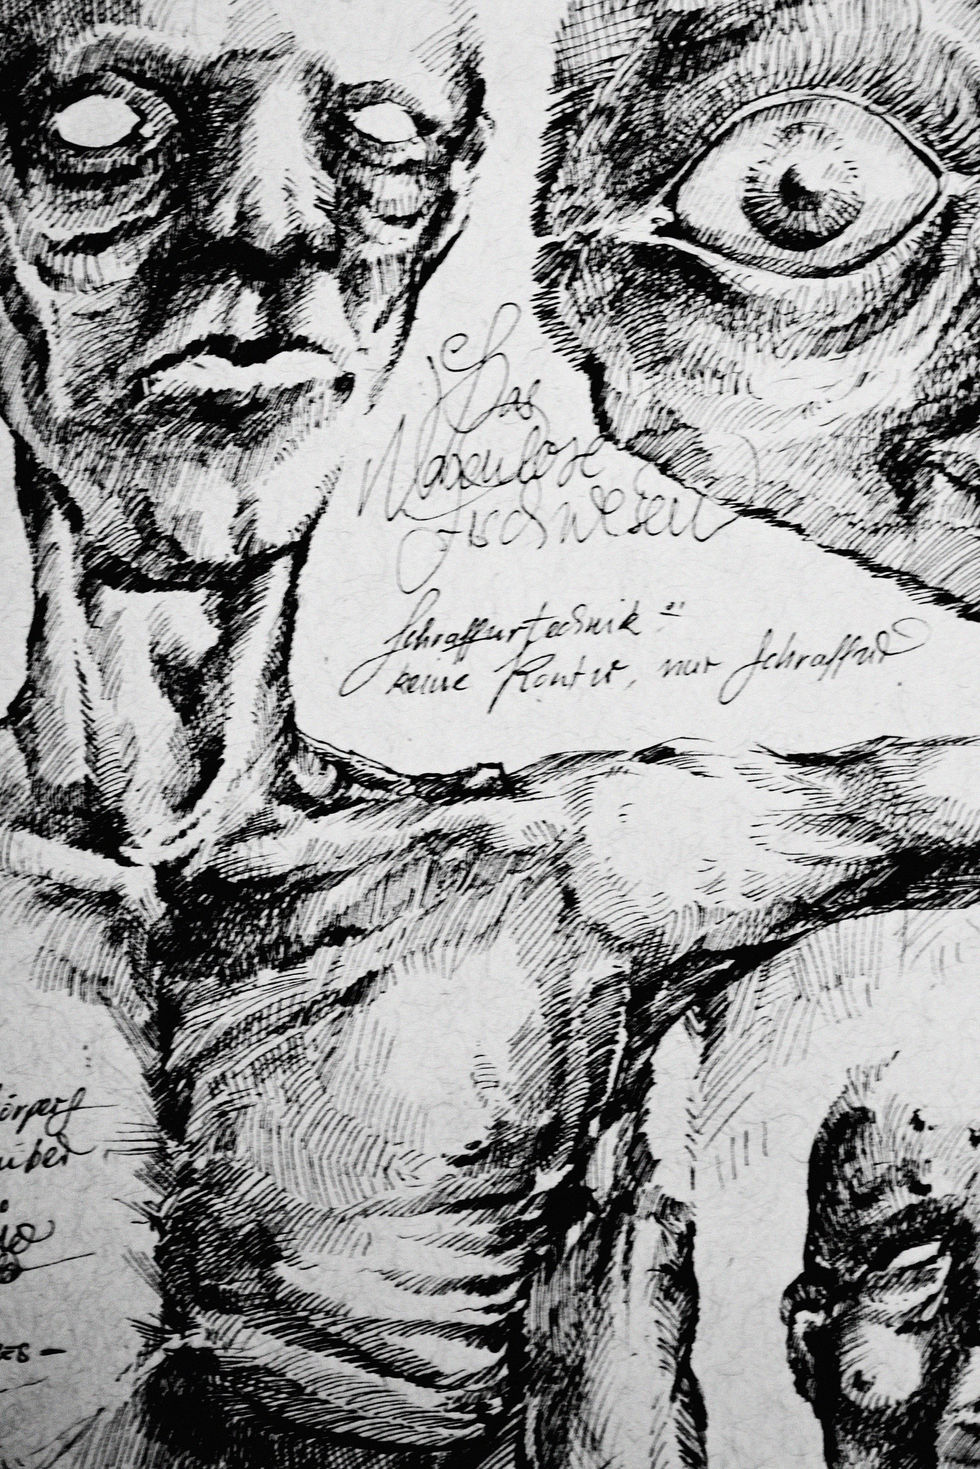 Das
Nasenlose
Fischwesen
Schraffurtechnik:
keine Kontur, nur Schraffur
über